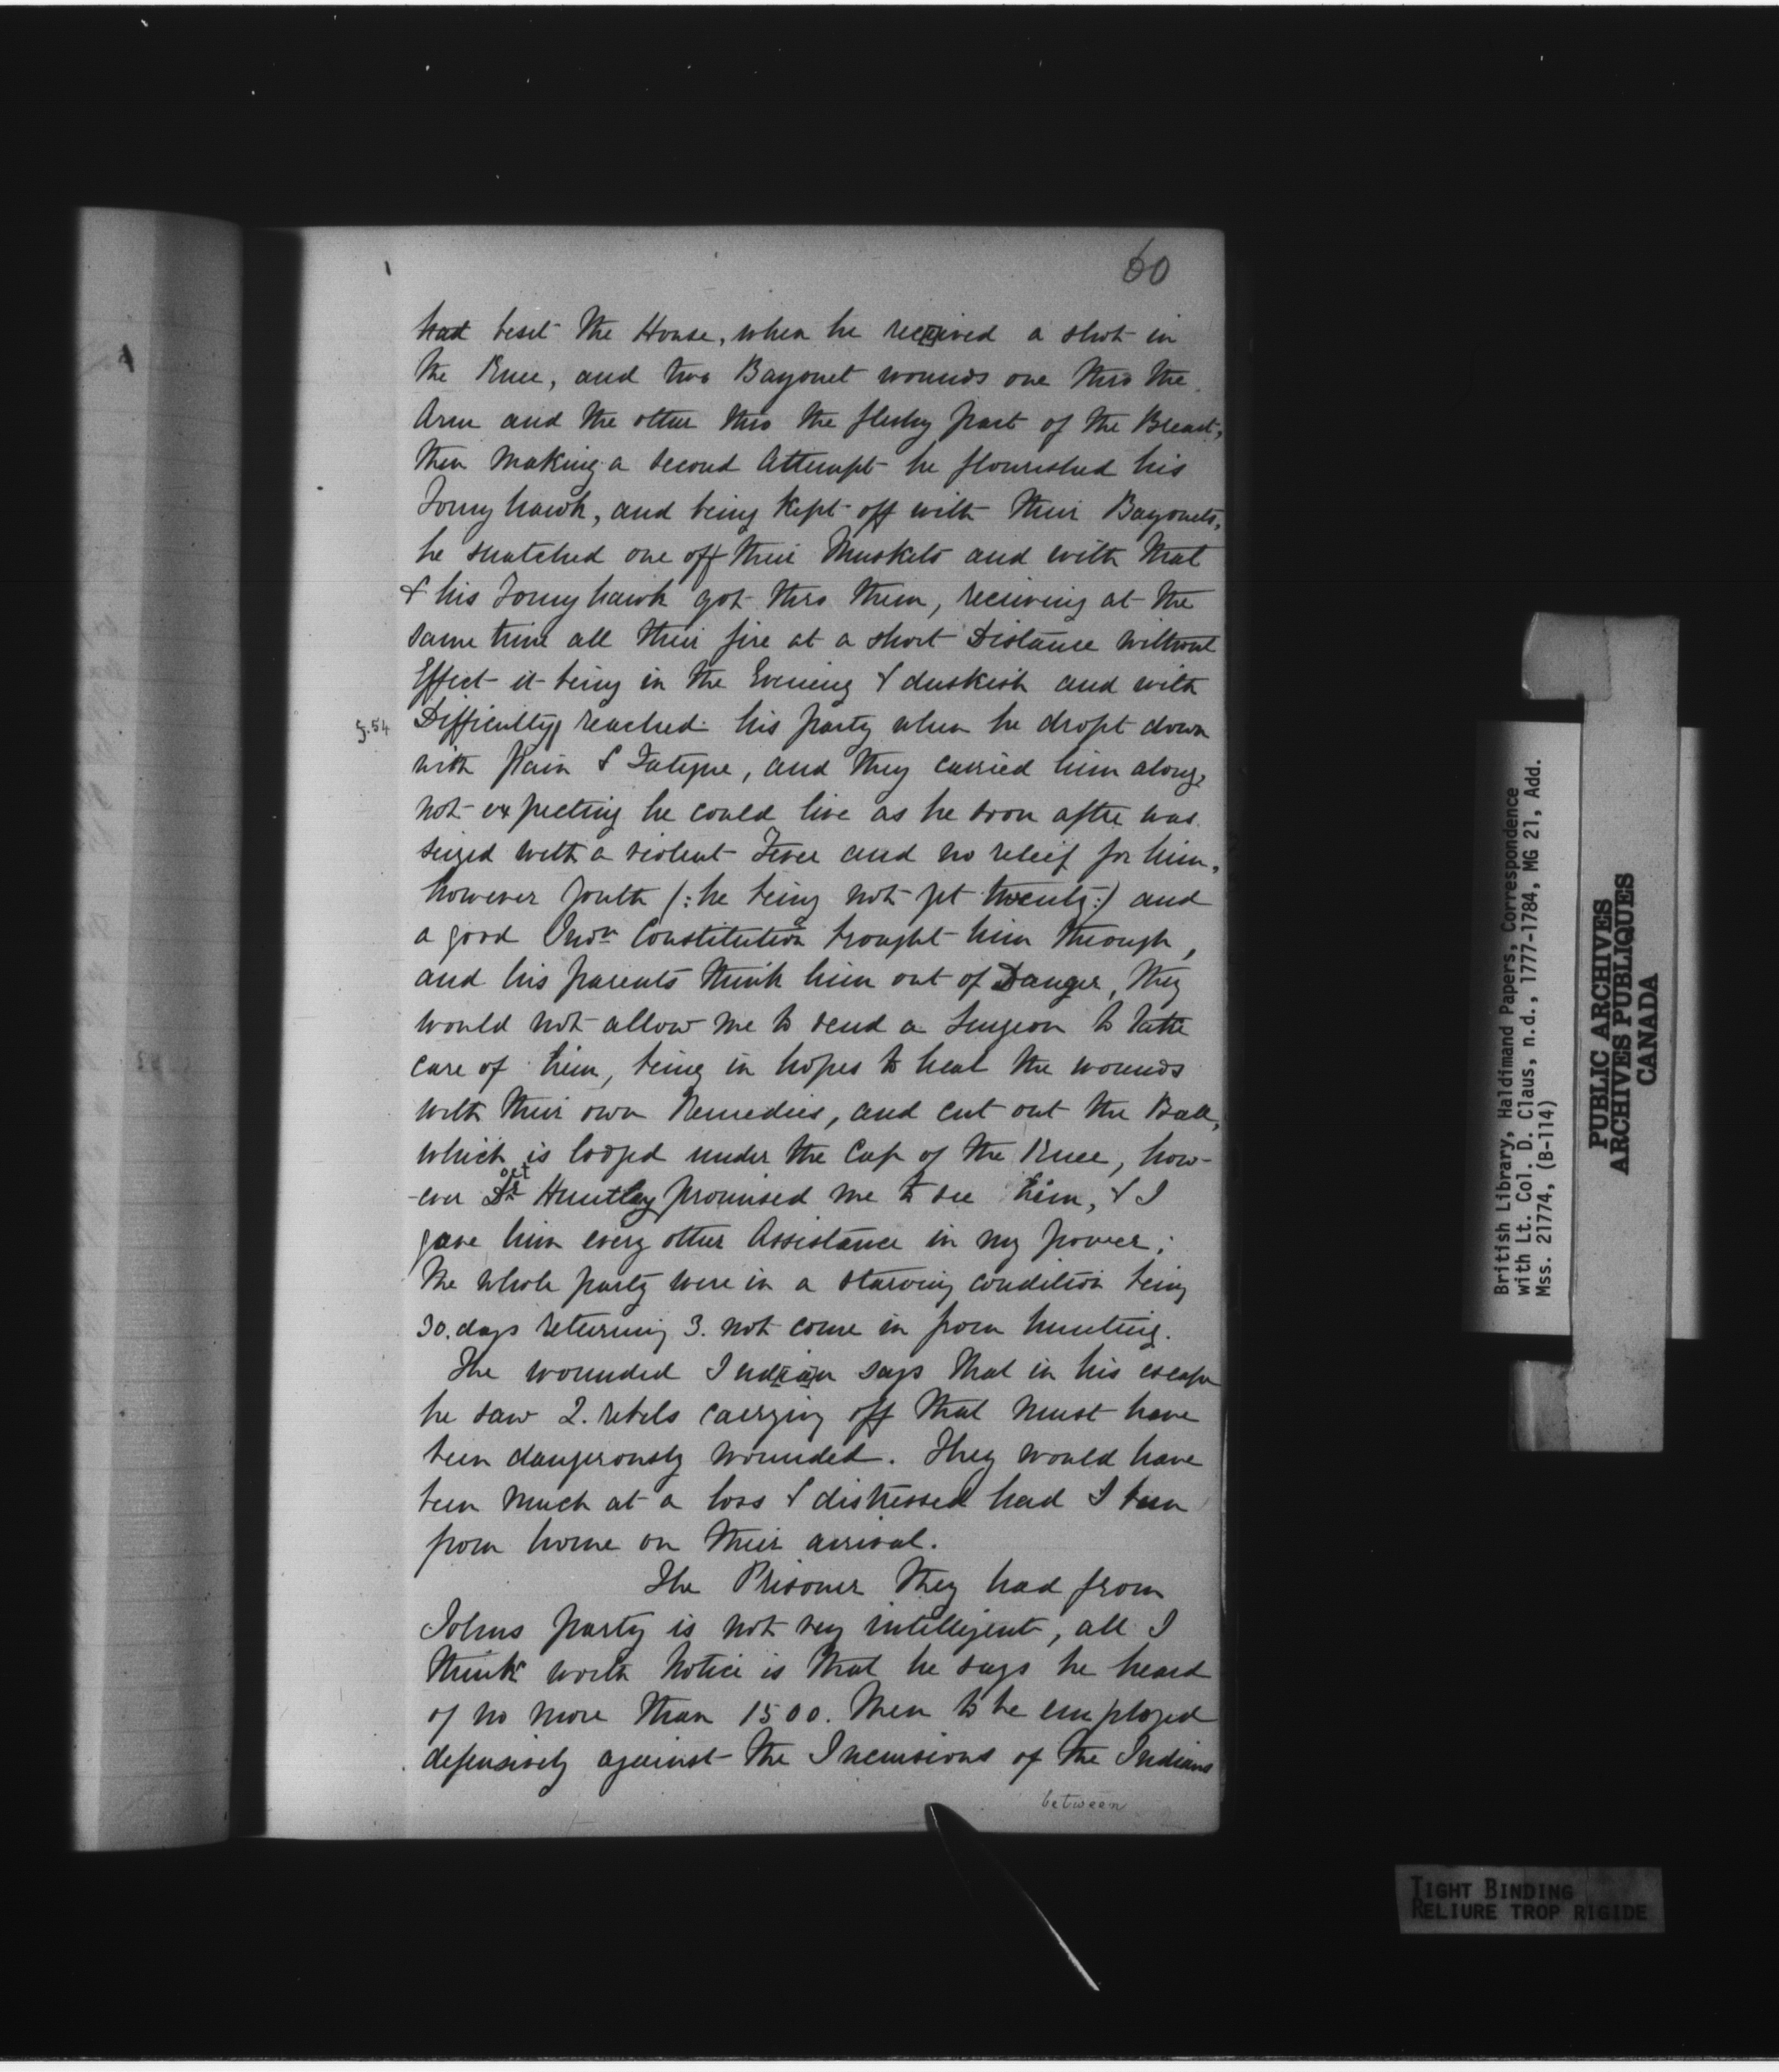 60
had beset the House, when he received a shot in
the Knee, and two Bayonet wounds one thro the
Arm and the other thro the fleshy part of the Breast,
then making a second Attempt he flourished his
Tomyhawk, and being kept off with their Bayonets,
he snatched one off their Muskets and with that
& his Tomyhawk got thro them, recieving at the
same time all their fire at a short Distance without
Effect it being in the Evening & duskish and with
f.54 Difficulty reached his party when he dropt down
with Pain & Fatigue, and they carried him along,
not expecting he could live as he soon after was
seized with a violent Fever and no relief for him,
however youth (:he being not yet twenty:) and
a good Indn Constitution brought him through,
and his parents think him out of Danger, they
would not allow me to send a Surgeon to take
care of him, being in hopes to heal the wounds
with their own Remedies, and cut out the Ball,
which is lodged under the Cap of the Knee, how-
-ever Doct Huntley promised me to see him, & I
gave him every other Assistance in my power;
the whole party were in a starving condition being
30. days returning 3. not come in from hunting.
The wounded Indian says that in his escape
he saw 2. rebels carrying off that must have
been dangerously wounded. They would have
been much at a loss & distressed had I been
from home on their arrival.
The Prisoner they had from
Johns party is not very intelligent, all I
think worth Notice is that he says he heard
of no more than 1500. Men to be employed
defensively against the Incursions of the Indians
between
British Library, Haldimand Papers, Correspondence
with Lt. Col. D. Claus, n.d., 1777-1784, MG 21, Add.
Mss. 21774, (B-114)
PUBLIC ARCHIVES
ARCHIVES PUBLIQUES
CANADA
TIGHT BINDING
RELIURE TROP RIGIDE